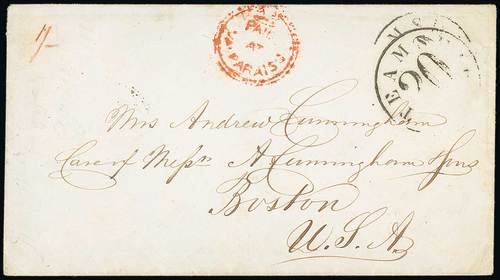 1/-
PAID
AT
PARAISO
STEAMSHIP
20
Mrs Andrew Cunningham
Care of Messrs A Cunningham & Sons
Boston
U.S.A.